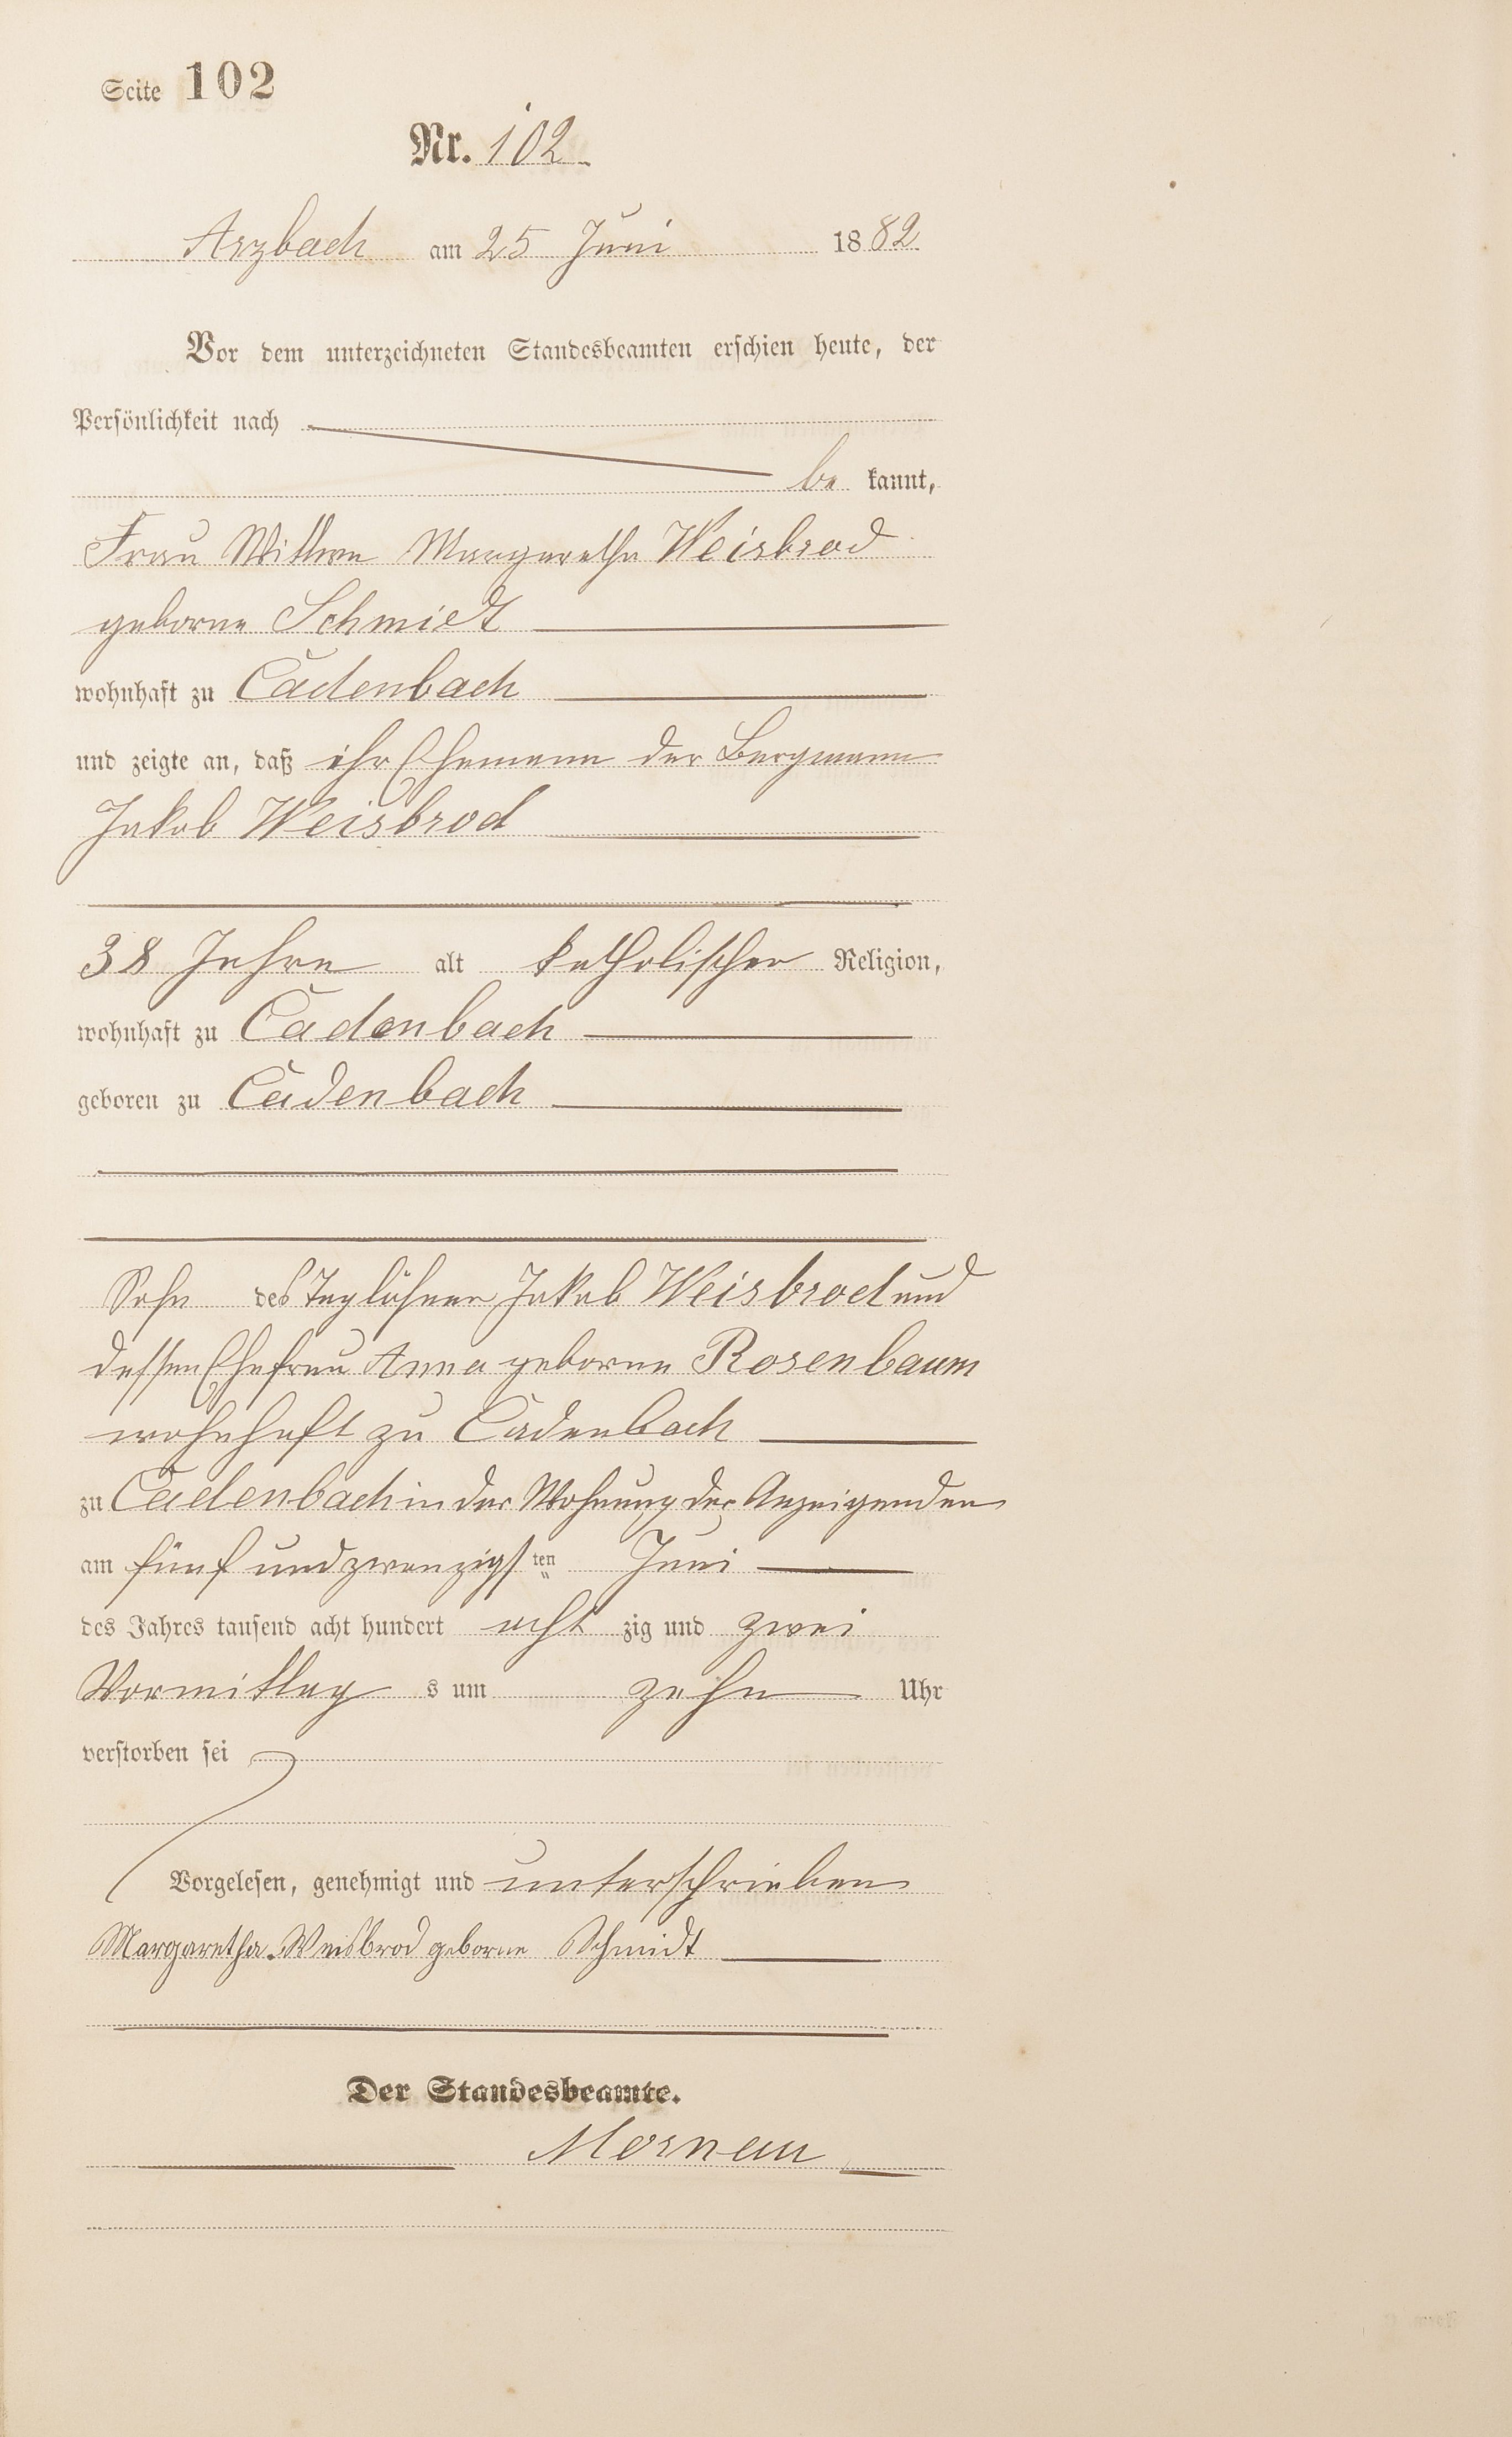 Seite 102
Nr. 102
Arzbach am 25 Juni 1882
Vor dem unterzeichneten Standesbeamten erschien heute, der
Persönlichkeit nach
be kannt,
Frau Wittwe Margaretha Weisbrod
geborne Schmidt
wohnhaft zu Cadenbach
und zeigte an, daß ihr Ehemann der Bergmann
Jakob Weisbrod
38 Jahre alt katholischer Religion,
wohnhaft zu Cadenbach
geboren zu Cadenbach
Sohn des Taglöhner Jakob Weisbrod und
dessen Ehefrau Anna geborne Rosenbaum
wohnhaft zu Cadenbach
zu Cadenbach in der Wohnung der Anzeigenden
am fünf und zwanzigsten Juni
des Jahres tausend acht hundert acht zig und zwei
Vormittag s um zehn Uhr
verstorben sei
Vorgelesen, genehmigt und unterschrieben
Margaretha Weisbrod geborne Schmidt
Der Standesbeamte.